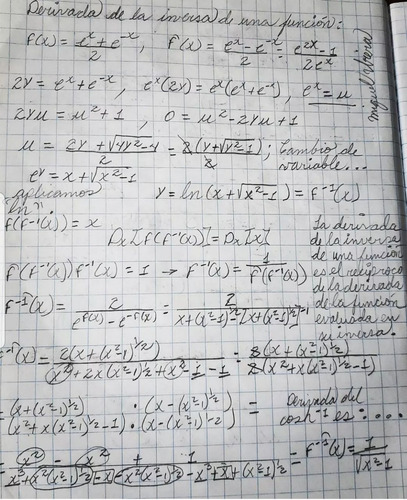 Derivada de la inversa de una función:
f(x) = (e^x + e^-x)/2 , f'(x) = (e^x - e^-x)/2 = (e^2x - 1)/(2e^x)
2y = e^x + e^-x , e^x(2y) = e^x(e^x + e^-x) , e^x = u
2yu = u² + 1 , 0 = u² - 2yu + 1
u = (2y + √(4y² - 4))/2 = 2(y + √(y² - 1))/2 ; Cambio de
variable...
e^y = x + √(x² - 1)
aplicamos
ln
y = ln(x + √(x² - 1)) = f^-1(x)
f(f^-1(x)) = x
Dx[f(f^-1(x))] = Dx[x]
f'(f^-1(x)) f^-1'(x) = 1 → f^-1'(x) = 1/(f'(f^-1(x)))
La derivada
de la inversa
de una función
es el recíproco
de la derivada
de la función
evaluada en
su inversa.
f^-1'(x) = 2/(e^f^-1(x) - e^-f^-1(x)) = 2/(x + (x² - 1)^½ - [x + (x² - 1)^½]^-1)
f^-1'(x) = 2(x + (x² - 1)^½)/(x² + 2x(x² - 1)^½ + x² - 1 - 1) = 2(x + (x² - 1)^½)/(2(x² + x(x² - 1)^½ - 1))
= (x + (x² - 1)^½)/(x² + x(x² - 1)^½ - 1) · (x - (x² - 1)^½)/(x - (x² - 1)^½) =
derivada del
cosh^-1 es:....
= f^-1'(x) = 1/√(x² - 1)
miguel